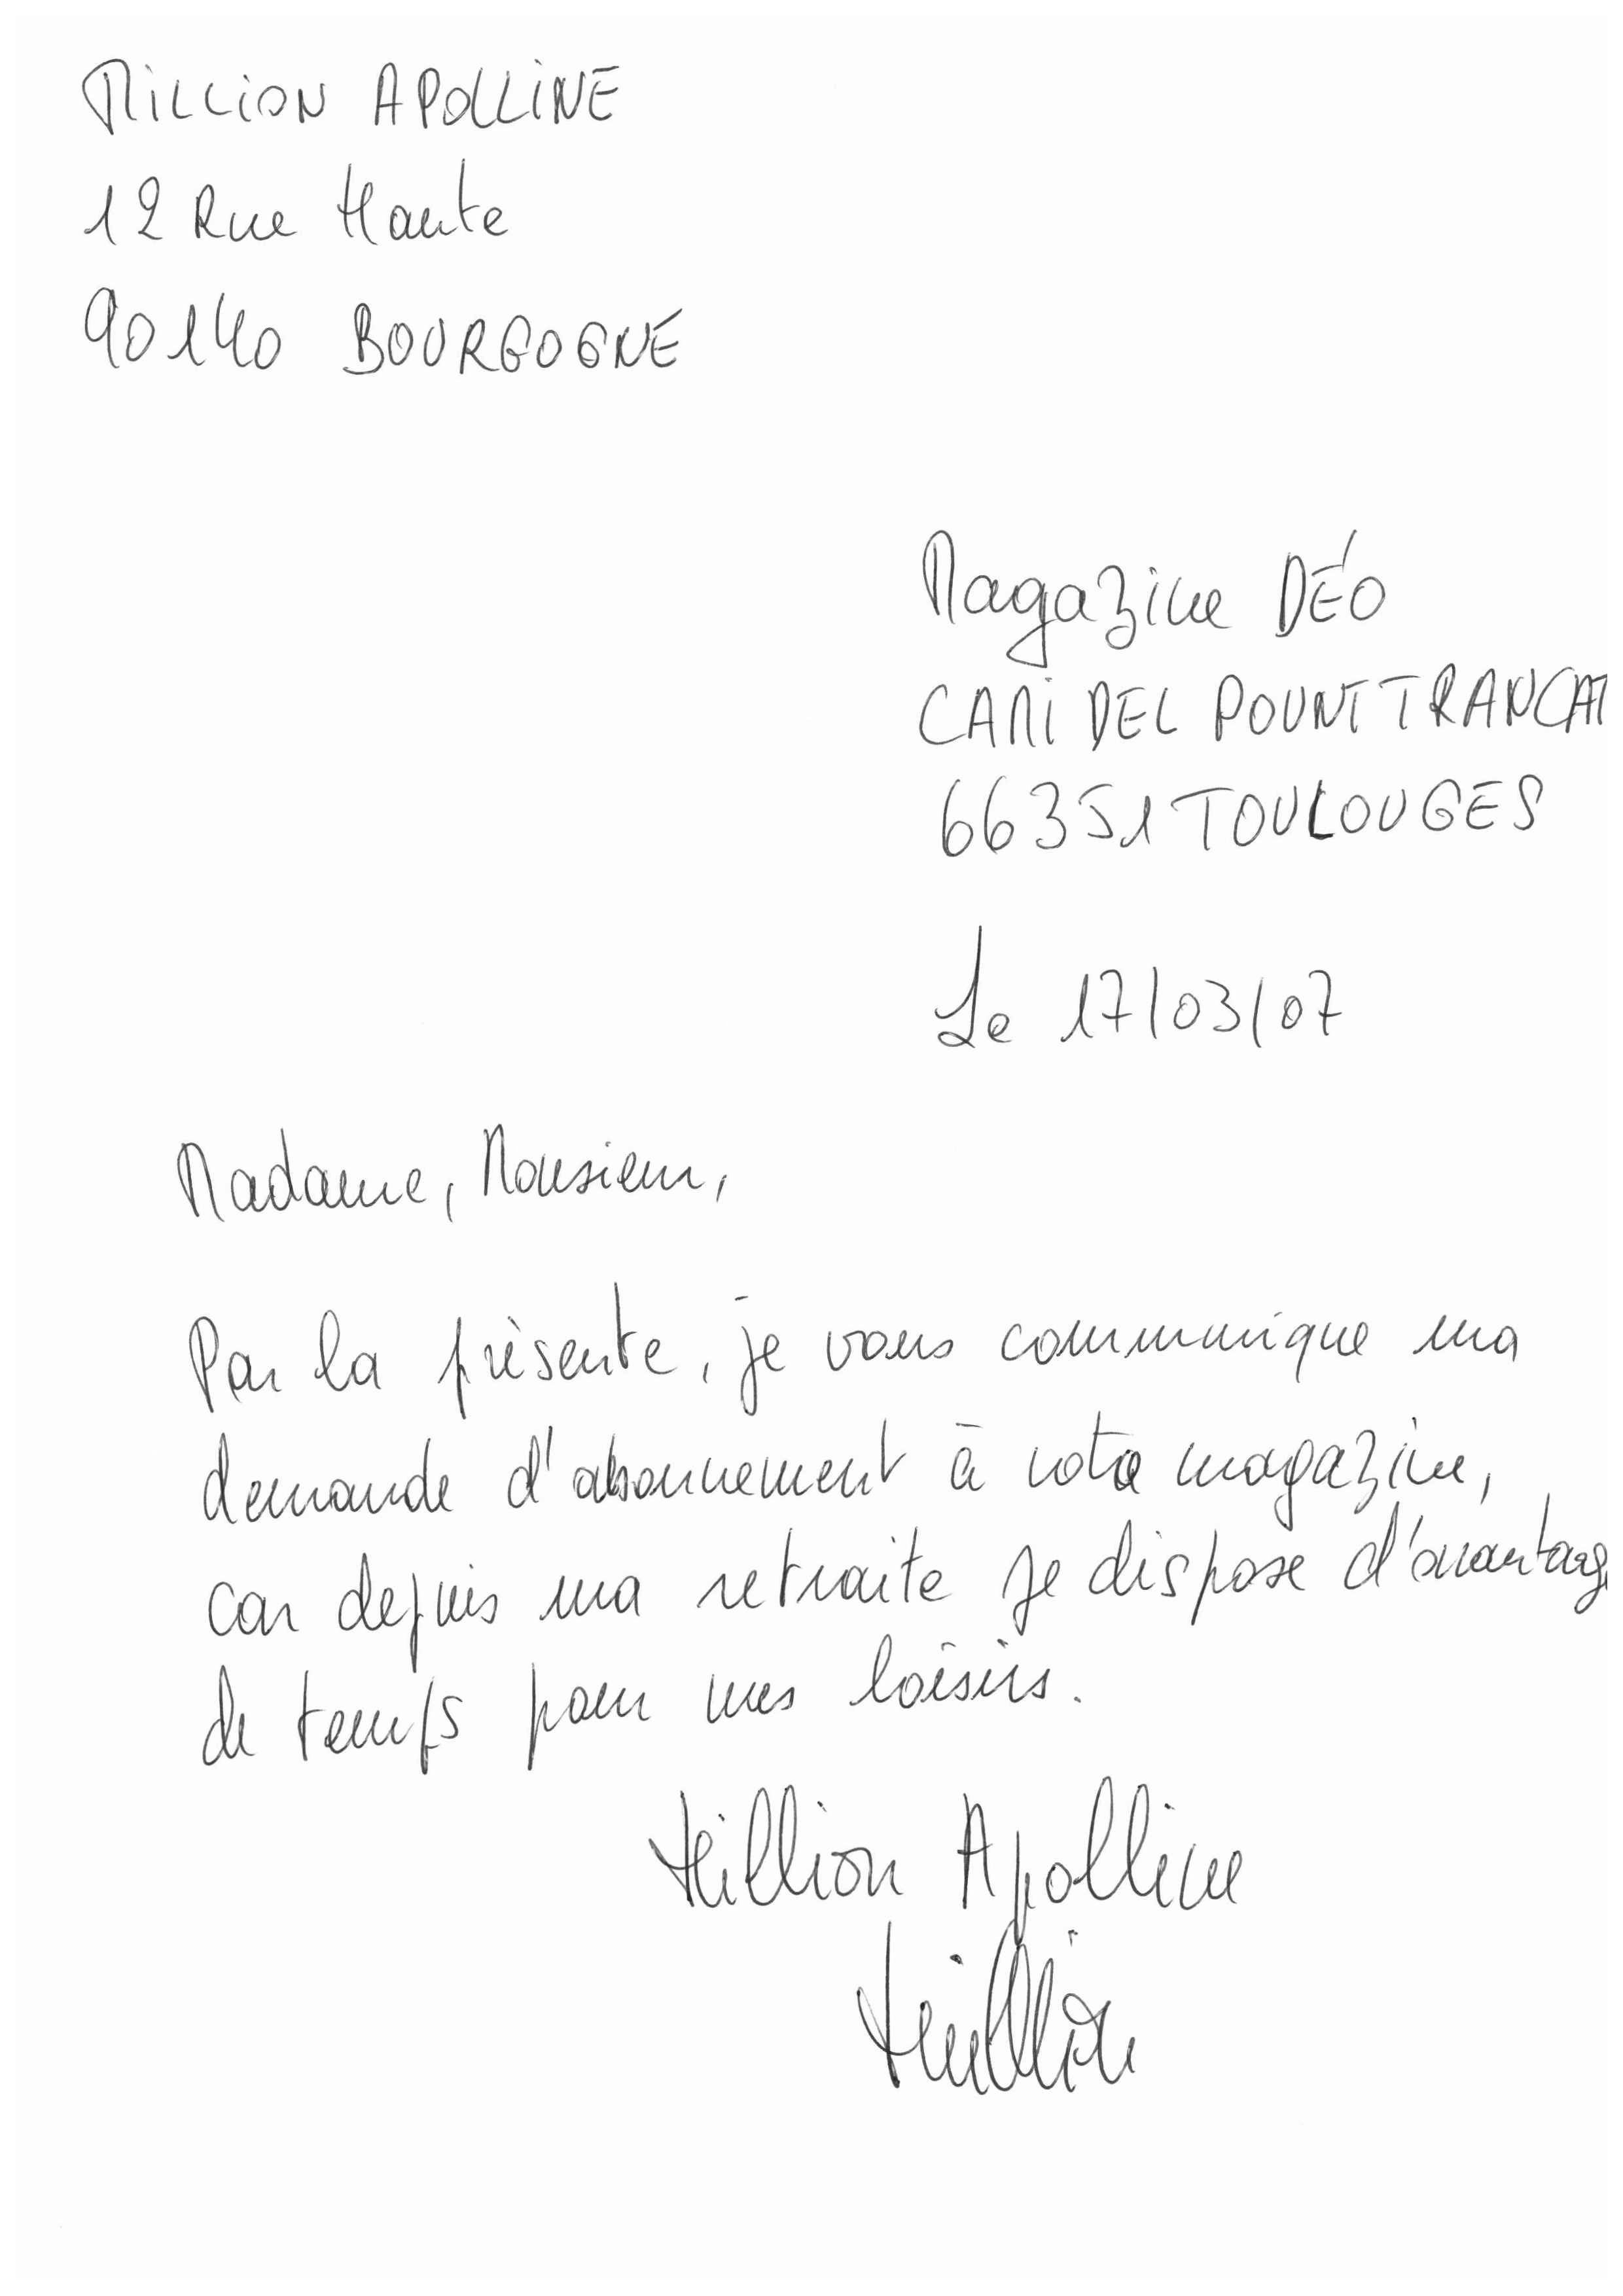 MILLION APOLLINE
12 Rue Haute
90140 BOURGOGNE
Magazine DÉO
CAMI DEL POUNT TRANCAT
66351 TOULOUGES
Le 17/03/07
Madame, Monsieur,
Par la présente, je vous communique ma
demande d'abonnement à votre magazine,
car depuis ma retraite je dispose d'avantag
de temps pour mes loisirs.
Million Apolline
Million